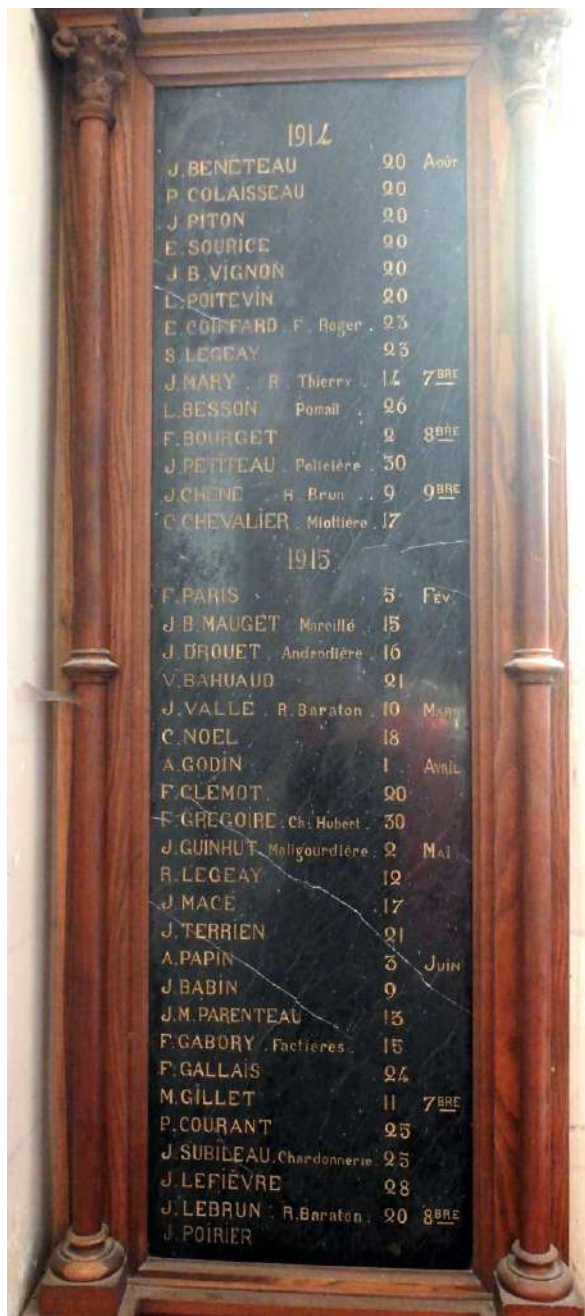 1914
J. BENÉTEAU 20 Août
P. COLAISSEAU 20
J. PITON 20
E. SOURICE 20
J. B. VIGNON 20
L. POITEVIN 20
E. COIFFARD F. Roger. 23
S. LEGEAY 23
J. MARY. R. Thierry. 14 7BRE
L. BESSON Pomail 26
F. BOURGET 2 8BRE
J. PETITEAU. Policière. 30
J. CHENE H. Brun.. 9 9BRE
C. CHEVALIER. Miottière. 17
1915
F. PARIS 5 Fév
J. B. MAUGET Mareillé 15
J. DROUET Androdière. 16
V. BAHUAUD 21
J. VALLÉ. R. Baraton. 10 Mars
C. NOEL 18
A. GODIN 1 Avril
F. CLEMOT. 20
F. GREGOIRE. Ch. Hubert. 30
J. GUINHUT. Maligourdière. 2 Mai.
R. LEGEAY 12
J. MACÉ 17
J. TERRIEN 21
A. PAPIN 3 Juin
J. BABIN 9
J. M. PARENTEAU 13
F. GABORY. Factières. 15
F. GALLAIS 24
M. GILLET 11 7BRE
P. COURANT 25
J. SUBILEAU. Chardonnerie. 25
J. LEFIÈVRE 28
J. LEBRUN. R. Baraton. 20 8BRE
J. POIRIER